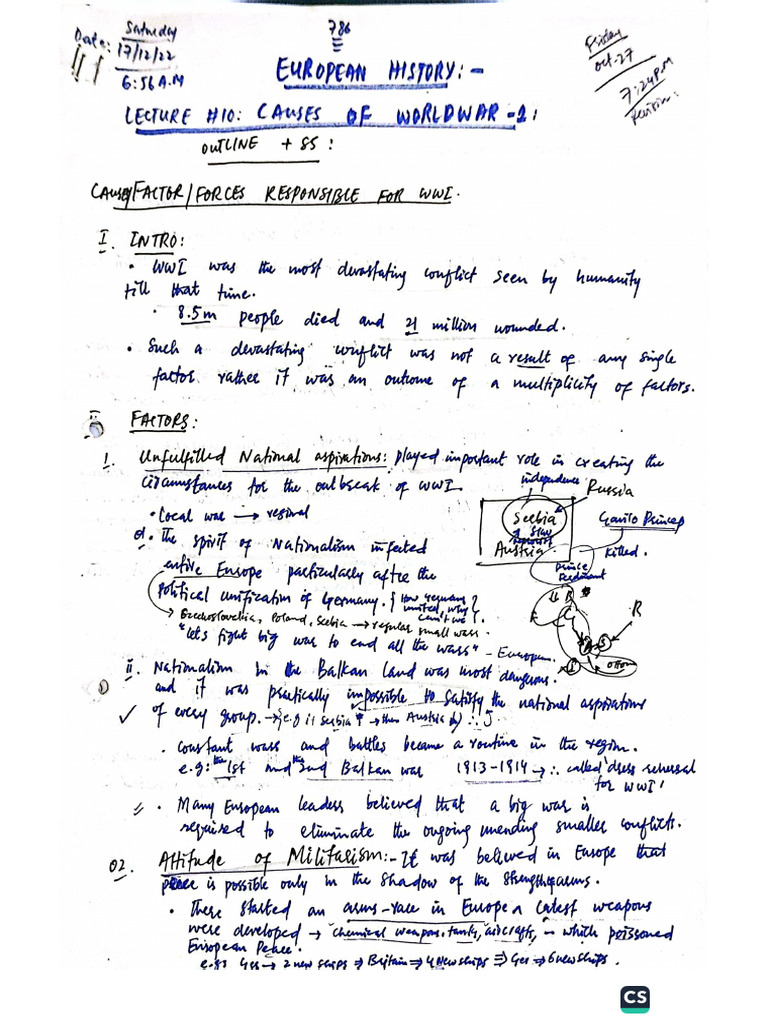 Date: Saturday
17/12/22
6:56 A.M
786
Friday
Oct-27
7:24 P.M
Revision:
EUROPEAN HISTORY:-
LECTURE #10: CAUSES OF WORLDWAR-1:
OUTLINE + SS:
CAUSES/FACTOR/FORCES RESPONSIBLE FOR WWI.
I. INTRO:
• WWI was the most devastating conflict seen by humanity
till that time.
• 8.5m people died and 21 million wounded.
• Such a devastating conflict was not a result of any single
factor rather it was an outcome of a multiplicity of factors.
II. FACTORS:
1. Unfulfilled National aspirations: played important role in creating the
circumstances for the outbreak of WWI
• Local war → regional
independence
Russia
Serbia
Slav
Austria
Gavilo Princep
killed.
Prince
Ferdinand
R
ottom
i. • The spirit of Nationalism infected
entire Europe particularly after the
political unification of Germany. { How Germany united, why can't we }
→ Czechoslovakia, Poland, Serbia → regular small wars.
"Let's fight big war to end all the wars" - European.
ii. Nationalism in the Balkan land was most dangerous.
and it was practically impossible to satisfy the national aspirations
of every group. → {e.g if Serbia ↑ → then Austria ↓} ∴
• Constant wars and battles became a routine in the region.
e.g: the 1st and the 2nd Balkan war 1913-1914 → ∴ called 'dress rehersal
for WWI'
• Many European leaders believed that a big war is
required to eliminate the ongoing unending smaller conflicts.
02. Attitude of Militarism:- It was believed in Europe that
peace is possible only in the shadow of the strength of arms.
• There started an arms-race in Europe & latest weapons
were developed → chemical weapons, tanks, aircrafts, - which poisoned
European Peace.
e.g: Ger → 2 new ships ⇒ Britain ⇒ 4 New ships ⇒ Ger ⇒ 6 new ships.
CS